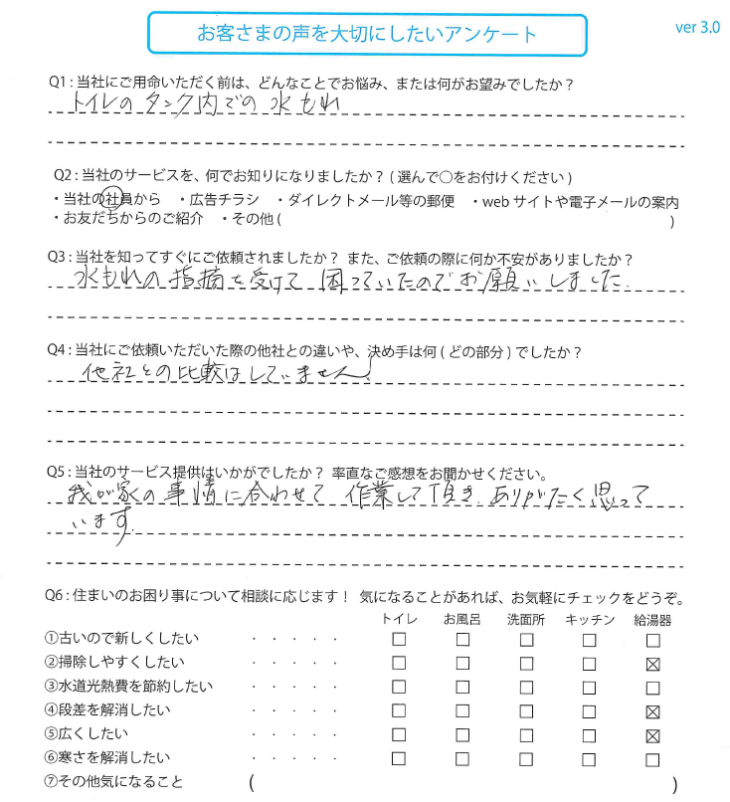 お客さまの声を大切にしたいアンケート
ver 3.0
Q1 : 当社にご用命いただく前は、どんなことでお悩み、または何がお望みでしたか？
トイレのタンク内での水もれ
Q2 : 当社のサービスを、何でお知りになりましたか？ ( 選んで〇をお付けください )
・当社の社員から ・広告チラシ ・ダイレクトメール等の郵便 ・web サイトや電子メールの案内
・お友だちからのご紹介 ・その他 ( )
Q3 : 当社を知ってすぐにご依頼されましたか？ また、ご依頼の際に何か不安がありましたか？
水もれの指摘を受けて困っていたのでお願いしました.
Q4 : 当社にご依頼いただいた際の他社との違いや、決め手は何 ( どの部分 ) でしたか？
他社との比較はしていません.
Q5 : 当社のサービス提供はいかがでしたか？ 率直なご感想をお聞かせください。
我が家の事情に合わせて作業して頂き.ありがたく思って
います.
Q6 : 住まいのお困り事について相談に応じます！ 気になることがあれば、お気軽にチェックをどうぞ。
トイレ お風呂 洗面所 キッチン 給湯器
①古いので新しくしたい ・・・・・ □ □ □ □ □
②掃除しやすくしたい ・・・・・ □ □ □ □ ☒
③水道光熱費を節約したい ・・・・・ □ □ □ □ □
④段差を解消したい ・・・・・ □ □ □ □ ☒
⑤広くしたい ・・・・・ □ □ □ □ ☒
⑥寒さを解消したい ・・・・・ □ □ □ □ □
⑦その他気になること ( )